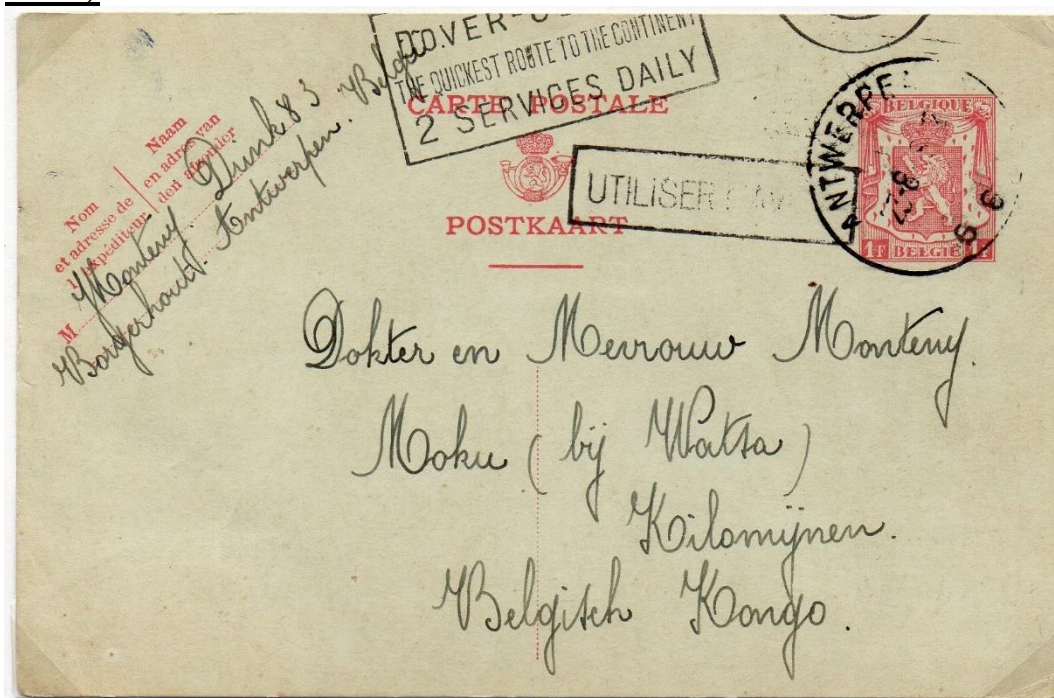 DOVER-
THE QUICKEST ROUTE TO THE CONTINENT
2 SERVICES DAILY
CARTE POSTALE
POSTKAART
UTILISER
ANTWERPE
BELGIQUE
1F BELGIË 1F
Nom
et adresse de
l'expéditeur
Naam
en adres van
den afzender
M Monteny Dunk 83
Borgerhout. Antwerpen. België
Dokter en Mevrouw Monteny.
Moku (bij Watsa)
Kilomijnen.
Belgisch Kongo.